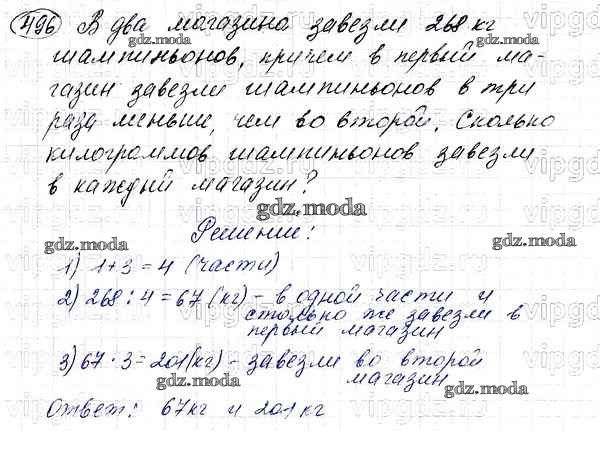 496 В два магазина завезли 268 кг
шампиньонов, причем в первый ма-
газин завезли шампиньонов в три
раза меньше, чем во второй. Сколько
килограммов шампиньонов завезли
в каждый магазин?
Решение:
1) 1+3=4 (части)
2) 268:4=67 (кг) - в одной части и
столько же завезли в
первый магазин
3) 67·3=201(кг) - завезли во второй
магазин
Ответ: 67кг и 201 кг
gdz.moda
gdz.moda
gdz.moda
gdz.moda
gdz.moda
gdz.moda
gdz.moda
gdz.moda
gdz.moda
gdz.moda